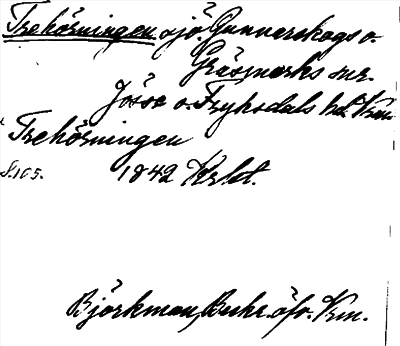 Trehörningen sjö, Gunnarskogs o.
Gräsmarks snr.
Jösse o. Fryksdals hd. Vrm
Trehörningen
S. 105. 1842 Krbt.
Björkman, Beskr. öfv. Vrm.